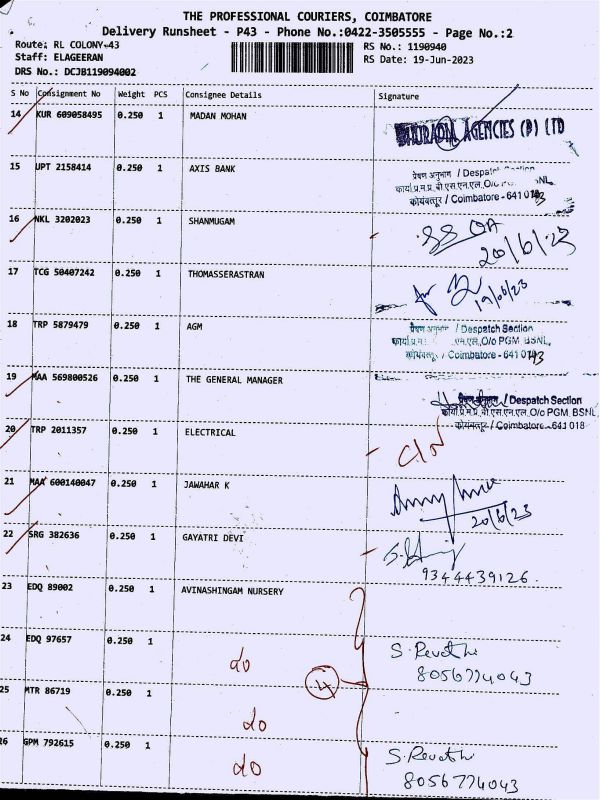 THE PROFESSIONAL COURIERS, COIMBATORE
Delivery Runsheet - P43 - Phone No.:0422-3505555 - Page No.:2
Route: RL COLONY-43 RS No.: 1190940
Staff: ELAGEERAN RS Date: 19-Jun-2023
DRS No.: DCJB119094002
S No Consignment No Weight PCS Consignee Details Signature
14 KUR 609058495 0.250 1 MADAN MOHAN
AGENCIES (P) LTD
15 UPT 2158414 0.250 1 AXIS BANK
प्रेषण अनुभाग / Despatch
कोयंबत्तूर / Coimbatore - 641 043
16 NKL 3202023 0.250 1 SHANMUGAM
20/6/23
17 TCG 50407242 0.250 1 THOMASSERASTRAN
19/06/23
18 TRP 5879479 0.250 1 AGM
/ Despatch Section
O/o PGM BSNL,
/ Coimbatore - 641 043
19 MAA 569800526 0.250 1 THE GENERAL MANAGER
/ Despatch Section
कार्या.प्र.म.प्र. बी.एस.एन.एल, O/o PGM, BSNL,
कोयंबत्तूर / Coimbatore - 641 018
20 TRP 2011357 0.250 1 ELECTRICAL
21 MAA 600140047 0.250 1 JAWAHAR K
20/6/23
22 SRG 382636 0.250 1 GAYATRI DEVI
9344439126.
23 EDQ 89002 0.250 1 AVINASHINGAM NURSERY
24 EDQ 97657 0.250 1 do S. Revathi
8056774043
4
25 MTR 86719 0.250 1 do
26 GPM 792615 0.250 1 do S. Revathi
8056774043